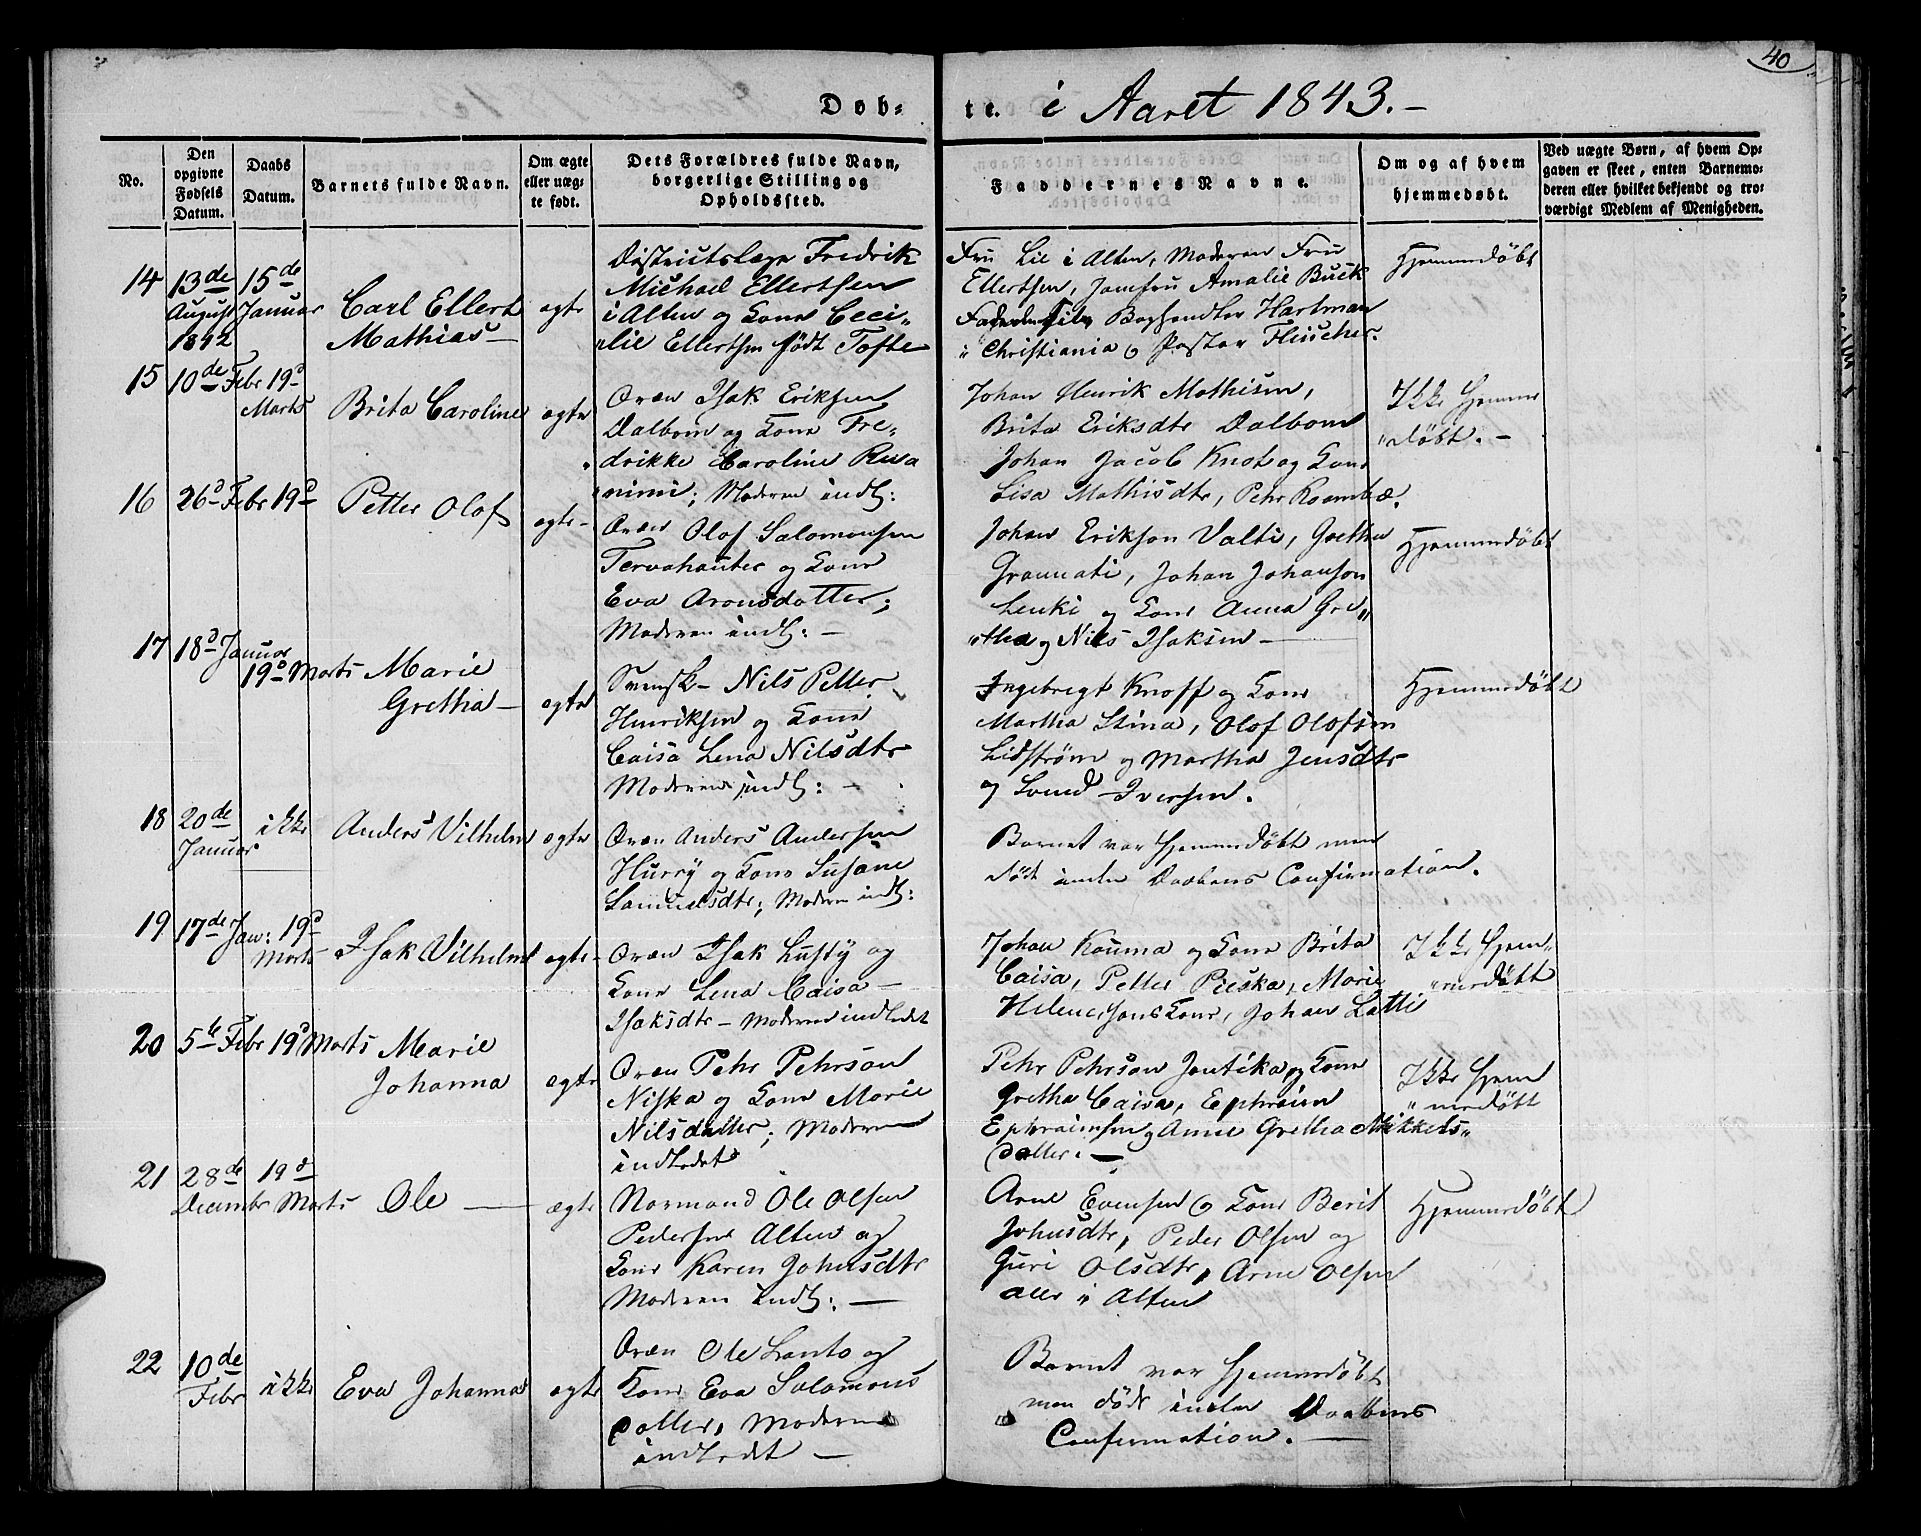 40
Døb-
te. i Aaret 1843.-
No.
Den
opgivne
Fødsels
Datum.
Daabs
Datum.
Barnets fulde Navn.
Om ægte
eller uæg-
te født.
Dets Forældres fulde Navn,
borgerlige Stilling og
Opholdssted.
Faddernes Navne.
Om og af hvem
hjemmedøbt.
Ved uægte Børn, af hvem Op-
gaven er skeet, enten Barnemo-
deren eller hvilket bekjendt og tro-
værdigt Medlem af Menigheden.
14
13de
August
1842
15de
Januar
Carl Ellert
Mathias
ægte
Districtslæge Fredrik
Michael Ellertsen
i Alten og Kone Ceci-
lie Ellertsen født Tofte
Fru Lie i Alten, Moderen Fru
Ellertsen, Jomfru Amalie Buck
Boghandler Hartman
i Christiania og Pastor Fleischer.
Hjemmedøbt
15
10de Febr
19d
Marts
Brita Caroline
ægte
Qvæn Isak Eriksen
Dalbom og Kone Fre-
drikke Caroline Rusa
nimi; Moderen indl:
Johan Henrik Mathisen,
Brita Eriksdtr Dalbom
Johan Jacob Knot og Kone
Lisa Mathisdtr, Pehr
Ikke Hjemme
døbt.-
16
26d Febr
19d
Petter Olof
ægte-
Qvæn Olof Salomonsen
Tervahauter og Kone
Eva Aronsdatter;
Moderen indl: -
Johan Erikson Valti, Gretha
Grannati, Johan Johanson
Lenki og Kone Anna Gre-
tha og Nils Isaksen
Hjemmedøbt
17
18d Januar
19d Marts
Marie
Gretha
ægte
Svensk- Nils Petter
Henriksen og Kone
Caisa Lena Nilsdtr
Moderen indl: -
Ingebregt Knoff og Kone
Martha Stina, Olof Olofsen
Lidstrøm og Martha Jensdtr
og Svend Iversen.
Hjemmedøbt
18
20de
Januar
ikke
Anders Vilhelm
ægte
Qvæn Anders Andersen
Hurry og Kone Susane
Samuelsdtr; Moderen indl:
Barnet var Hjemmedøbt men
døde inden Daabens Confirmation.
19
17de Jan:
19d
Marts
Isak Vilhelm
ægte-
Qvæn Isak Lusty og
Kone Lena Caisa
Isaksdtr - Moderen indledet
Johan Kouma og Kone Brita
Caisa, Petter Pieska, Marie
Helene, hans Kone, Johan Latti
Ikke Hjem-
medøbt
20
5te Febr
19d Marts
Marie
Johanna
ægte
Qvæn Pehr Pehrson
Niska og Kone Marie
Nilsdatter; Moderen
indledet
Pehr Pehrson Jontika og Kone
Gretha Caisa, Ephraim
Ephraimsen og Anne Gretha Mikkels-
datter.
Ikke Hjem
medøbt
21
28de
Decembr
19d
Marts
Ole
ægte
Normand Ole Olsen
Pedersen Alten og
Kone Karen Johnsdtr
Moderen indl: -
Arne Evensen og Kone Berit
Johnsdtr, Peder Olsen og
Guri Olsdtr, Arne Olsen
alle i Alten
Hjemmedøbt
22
10de
Febr
ikke
Eva Johanna
ægte
Qvæn Ole Lanto og
Kone Eva Salomons
datter, Moderen
indledet -
Barnet var Hjemmedøbt
men døde inden Daabens
Confirmation.